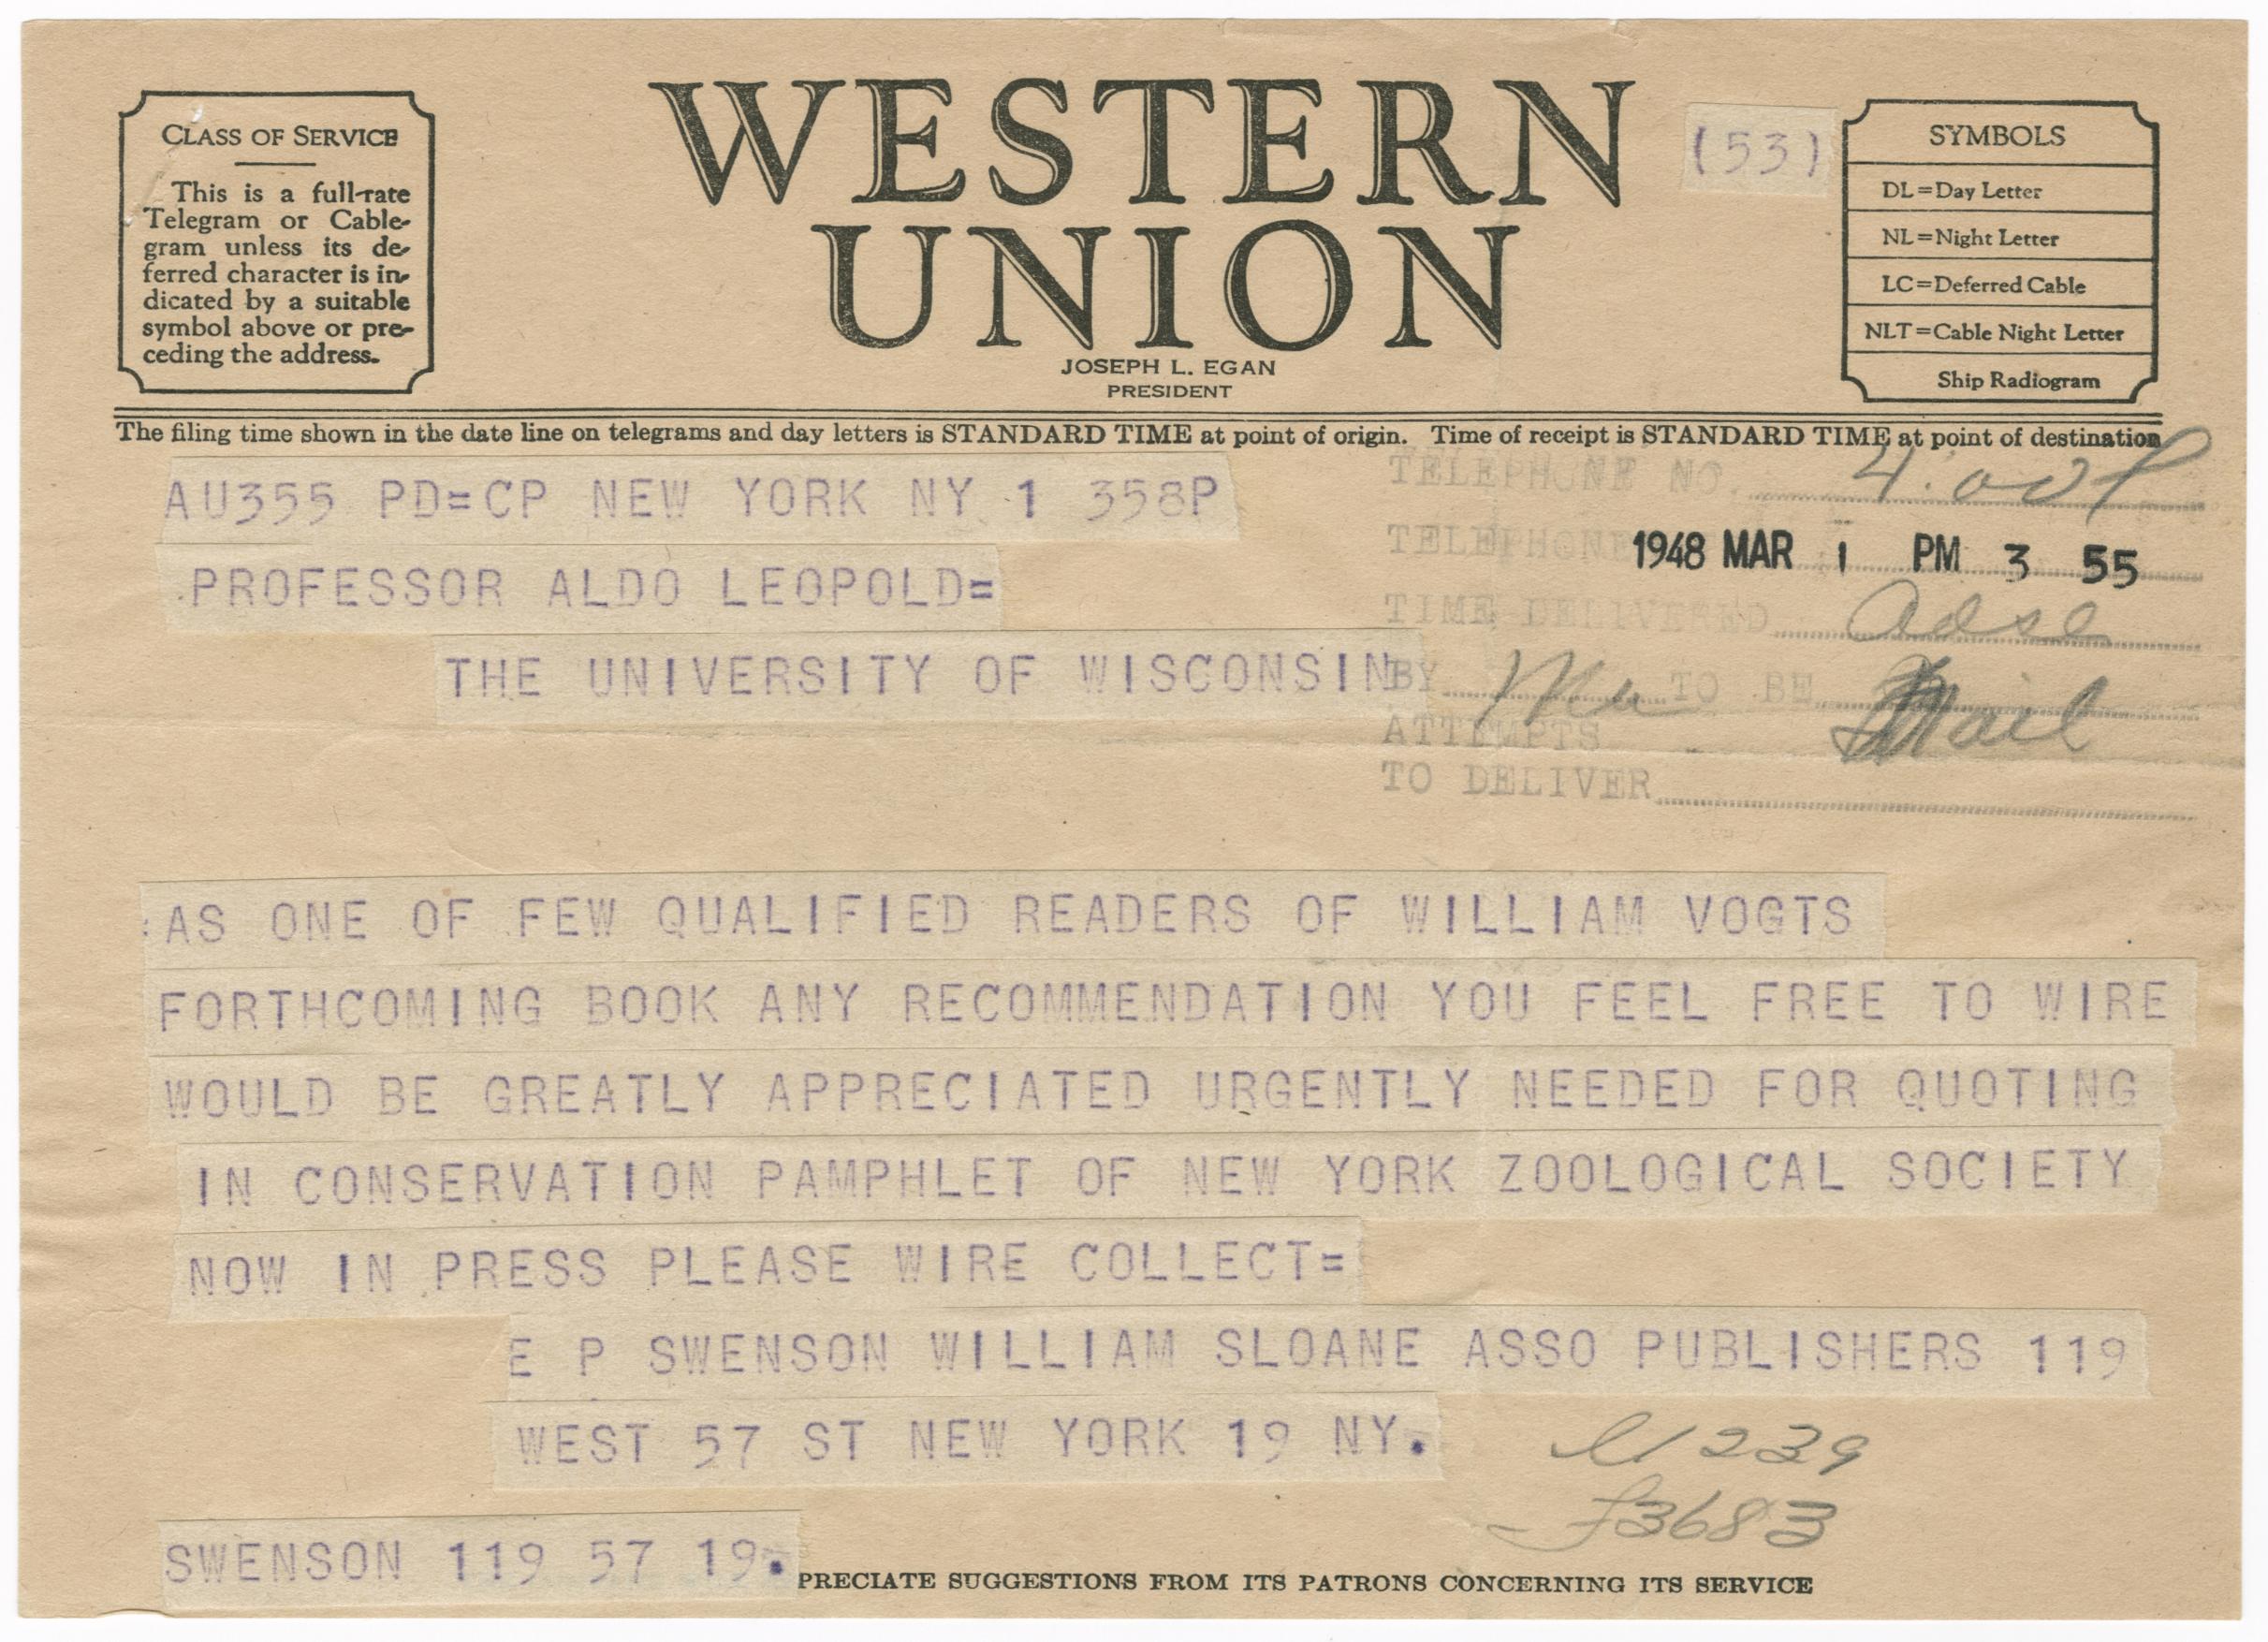 CLASS OF SERVICE
This is a full-rate
Telegram or Cable-
gram unless its de-
ferred character is in-
dicated by a suitable
symbol above or pre-
ceding the address.
WESTERN
UNION
JOSEPH L. EGAN
PRESIDENT
(53)
SYMBOLS
DL=Day Letter
NL=Night Letter
LC=Deferred Cable
NLT=Cable Night Letter
Ship Radiogram
The filing time shown in the date line on telegrams and day letters is STANDARD TIME at point of origin. Time of receipt is STANDARD TIME at point of destination
AU355 PD=CP NEW YORK NY 1 358P
TELEPHONE NO.
TELEPHONE 1948 MAR 1 PM 3 55
PROFESSOR ALDO LEOPOLD=
TIME DELIVERED
THE UNIVERSITY OF WISCONSIN
BY TO BE Mail
ATTEMPTS
TO DELIVER
:AS ONE OF FEW QUALIFIED READERS OF WILLIAM VOGTS
FORTHCOMING BOOK ANY RECOMMENDATION YOU FEEL FREE TO WIRE
WOULD BE GREATLY APPRECIATED URGENTLY NEEDED FOR QUOTING
IN CONSERVATION PAMPHLET OF NEW YORK ZOOLOGICAL SOCIETY
NOW IN PRESS PLEASE WIRE COLLECT=
E P SWENSON WILLIAM SLOANE ASSO PUBLISHERS 119
WEST 57 ST NEW YORK 19 NY.
1239
F3683
SWENSON 119 57 19.
PRECIATE SUGGESTIONS FROM ITS PATRONS CONCERNING ITS SERVICE